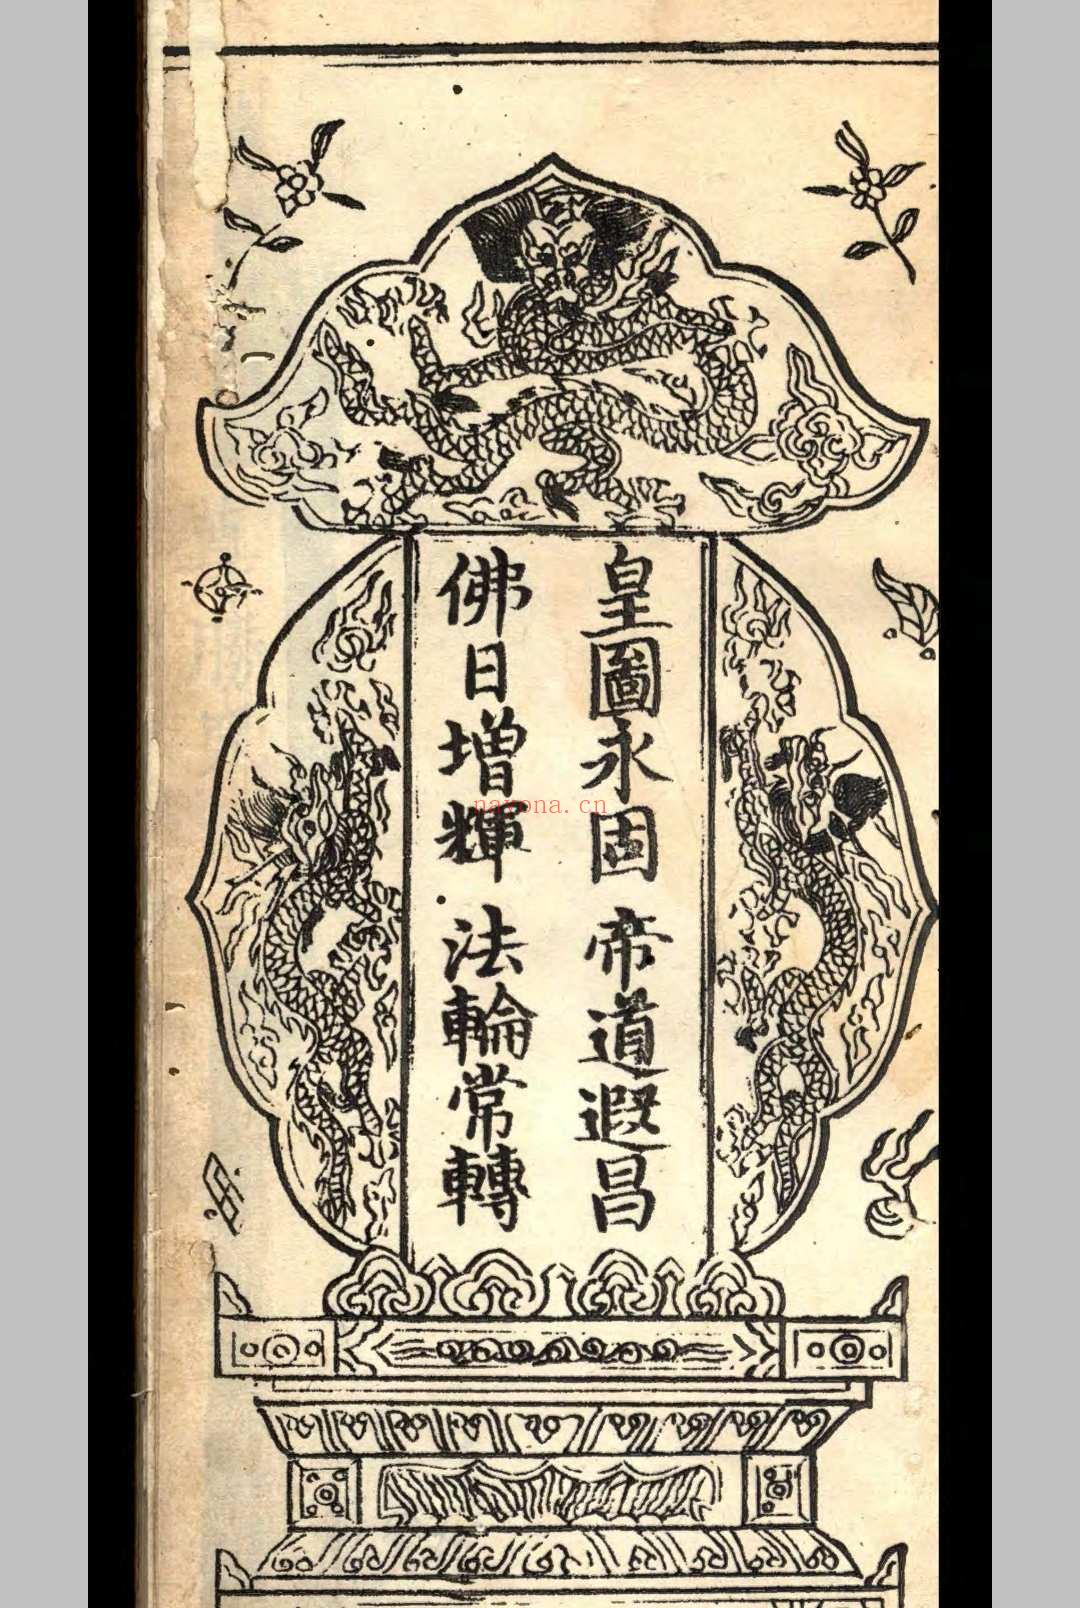 皇圖永固 帝道遐昌
佛日增輝 法輪常轉
nayona.cn